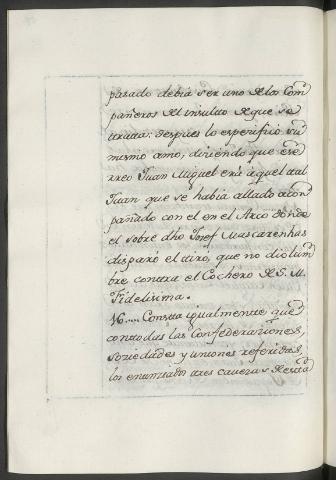 pasado debia ser uno de los Com
pañeros del insulto de que se
trata: despues lo espesificó su
mismo amo, diciendo que ese
rreo Juan Miguel era aquel tal
Juan que se habia allado acom
pañado con el en el Arco donde
el sobre dho Josef Mascarenhas
disparó el tiro, que no dio lum
bre contra el Cochero de S. M.
Fidelisima.
Consta igualmente que
con todas las Confederaciones,
Sociedades y uniones referidas,
los enunciados tres caveras de esta